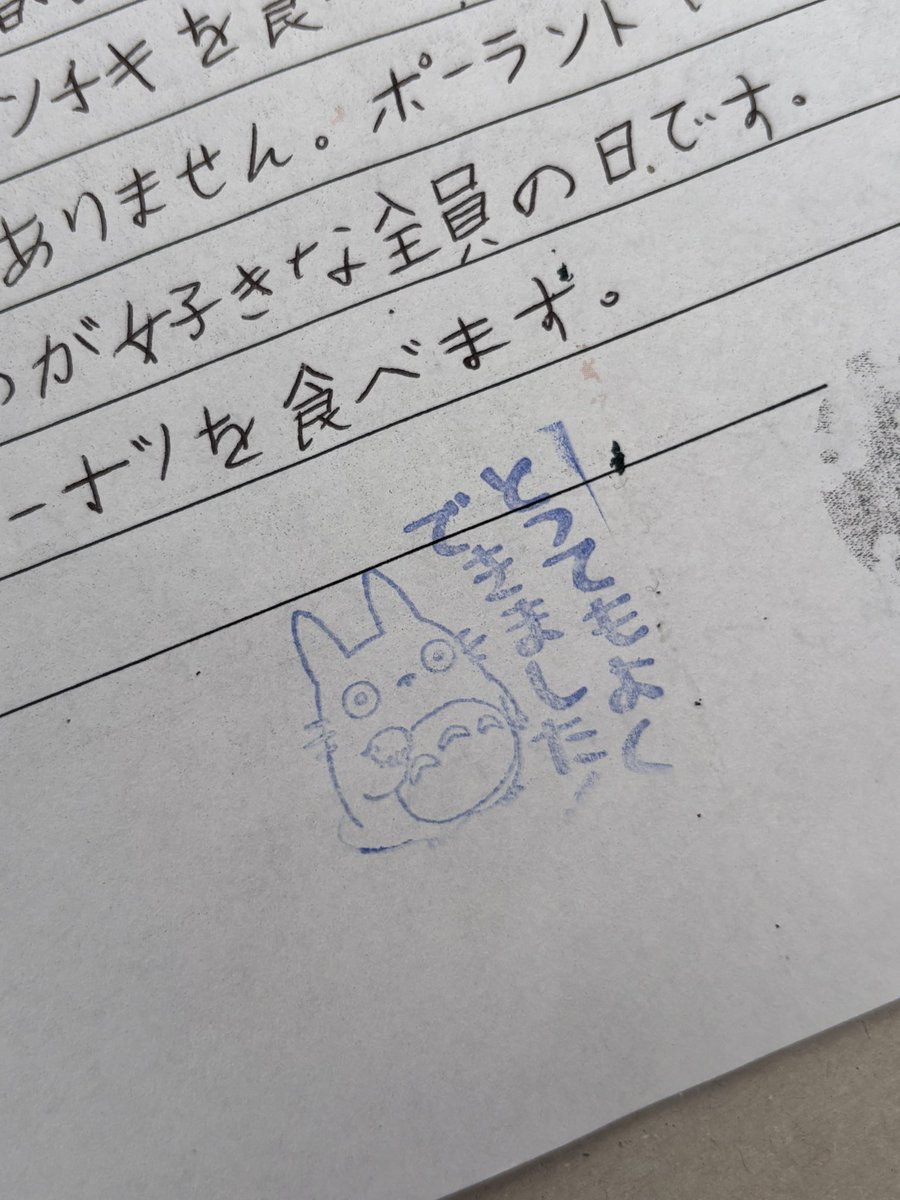 ンチキを食
ありません。ポーラント
が好きな全員の日です。
ーナツを食べます。
とってもよく
できました!